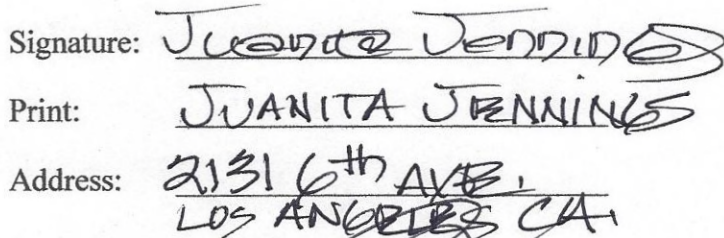 Signature: Juanita Jennings
Print: JUANITA JENNINGS
Address: 2131 6th AVE.
LOS ANGELES CA.